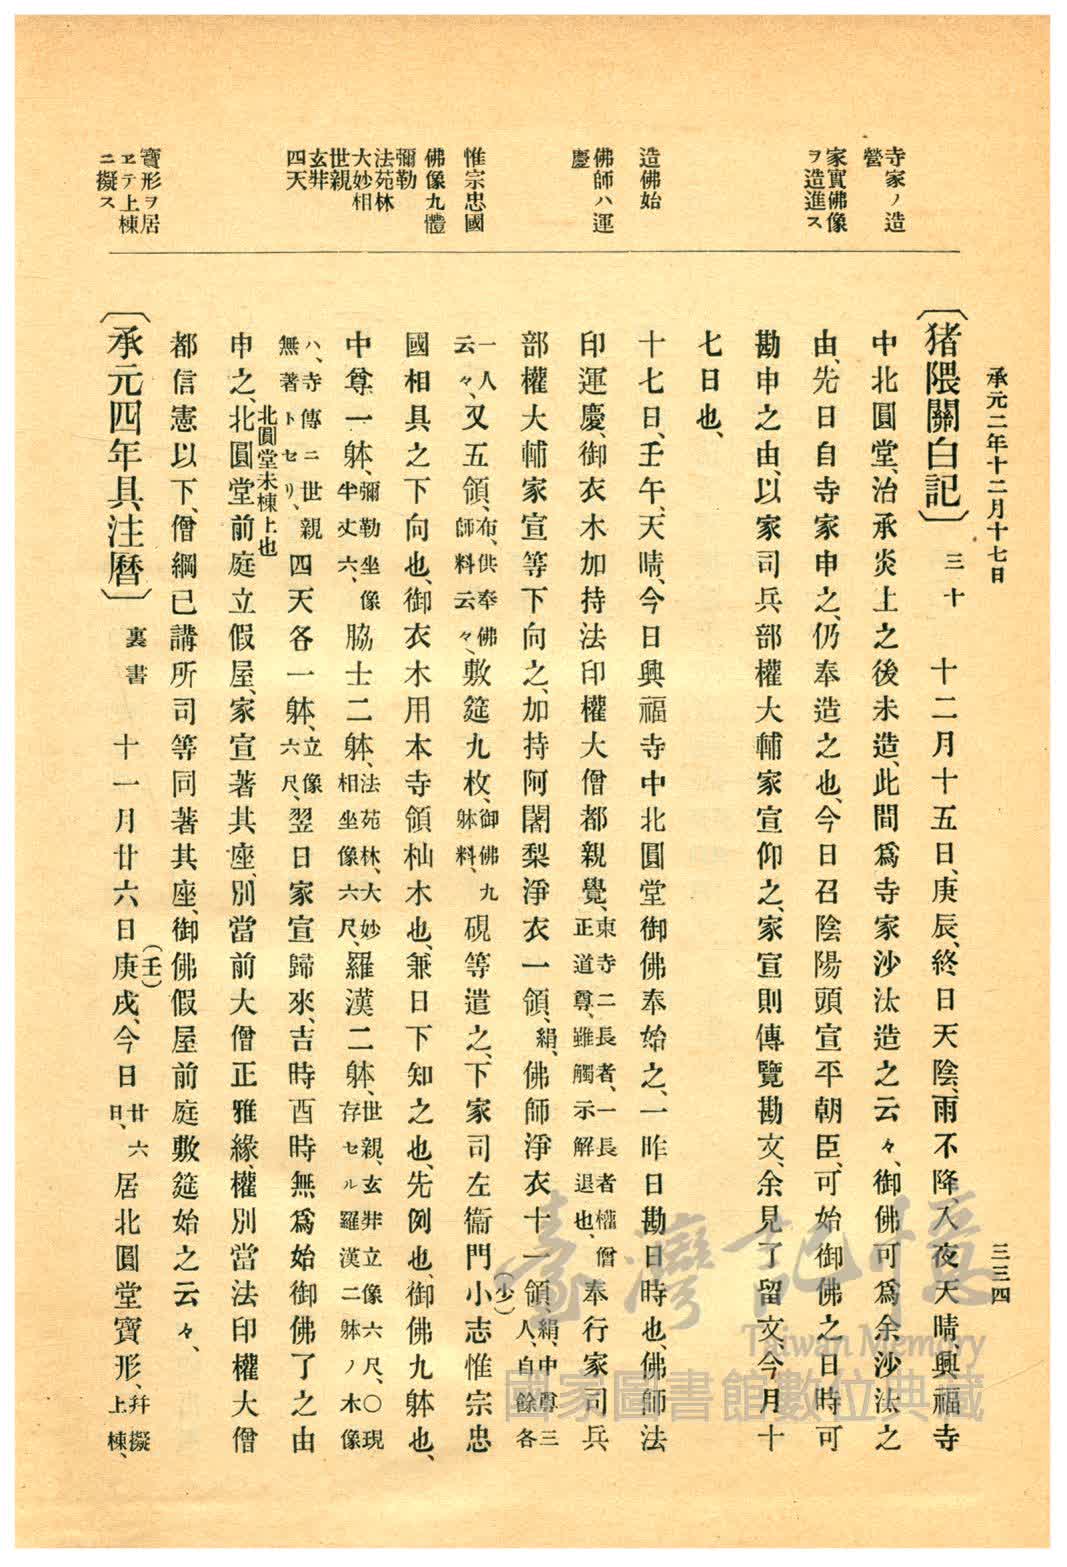 承元二年十二月十七日
三三四
寺家ノ造
營
家實佛像
ヲ造進ス
造佛始
佛師ハ運
慶
惟宗忠國
佛像九體
彌勒
法苑林
大妙相
世親
玄弉
四天
寶形ヲ居
ヱテ上棟
ニ擬ス
〔猪隈關白記〕三十 十二月十五日、庚辰、終日天陰、雨不降、入夜天晴、興福寺
中北圓堂、治承炎上之後未造、此間爲寺家沙汰造之云々、御佛可爲余沙汰之
由、先日自寺家申之、仍奉造之也、今日召陰陽頭宣平朝臣、可始御佛之日時可
勘申之由、以家司兵部權大輔家宣仰之、家宣則傳覽勘文、余見了留文、今月十
七日也、
十七日、壬午、天晴、今日興福寺中北圓堂御佛奉始之、一昨日勘日時也、佛師法
印運慶、御衣木加持法印權大僧都親覺、東寺二長者、一長者權僧正道尊、雖觸示解退也、奉行家司兵
部權大輔家宣等下向之、加持阿闍梨淨衣一領、絹、佛師淨衣十一領、絹、中尊三人、自餘各
一人云々、又五領、布、供奉佛師料云々、敷筵九枚、御佛九躰料、硯等遣之、下家司左衞門小(少)志惟宗忠
國相具之下向也、御衣木用本寺領杣木也、兼日下知之也、先例也、御佛九躰也、
中尊一躰、彌勒坐像半丈六、脇士二躰、法苑林、大妙相坐像六尺、羅漢二躰、世親、玄弉立像六尺、〇現存セル羅漢二躰ノ木像
ハ、寺傳ニ世親無著トセリ、四天各一躰、立像六尺、翌日家宣歸來、吉時酉時無爲始御佛了之由
申之、北圓堂未棟上也北圓堂前庭立假屋、家宣著其座、別當前大僧正雅緣、權別當法印權大僧
都信憲以下、僧綱已講所司等同著其座、御佛假屋前庭敷筵始之云々、
〔承元四年具注曆〕裏書 十一月廿六日庚(壬)戌、今日廿六日、居北圓堂寶形、幷擬上棟、
臺灣記憶
Taiwan Memory
國家圖書館數位典藏